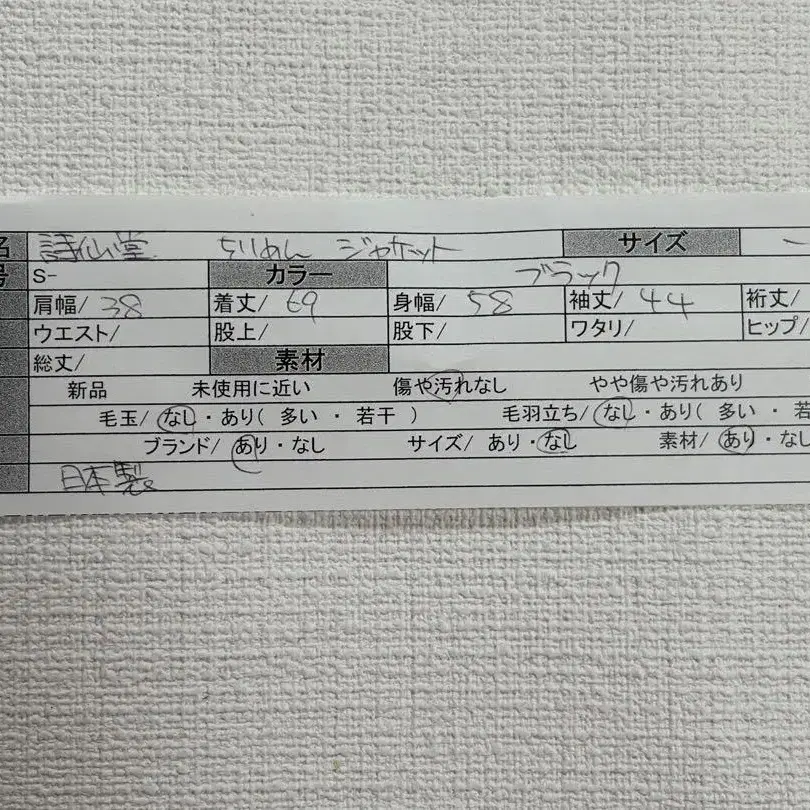 名 詩仙堂 ちりめん ジャケット サイズ ー
号 S- カラー ブラック
肩幅/ 38 着丈/ 69 身幅/ 58 袖丈/ 44 裄丈/
ウエスト/ 股上/ 股下/ ワタリ/ ヒップ/
総丈/ 素材
新品 未使用に近い 傷や汚れなし やや傷や汚れあり
毛玉/ なし・あり( 多い ・ 若干 ) 毛羽立ち/ なし・あり( 多い ・ 若
ブランド/ あり・なし サイズ/ あり・なし 素材/ あり・なし
日本製